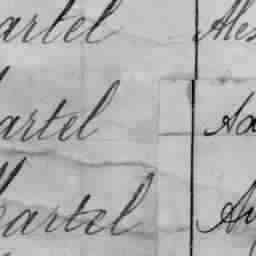 artel Ales
artel Ad
artel Au